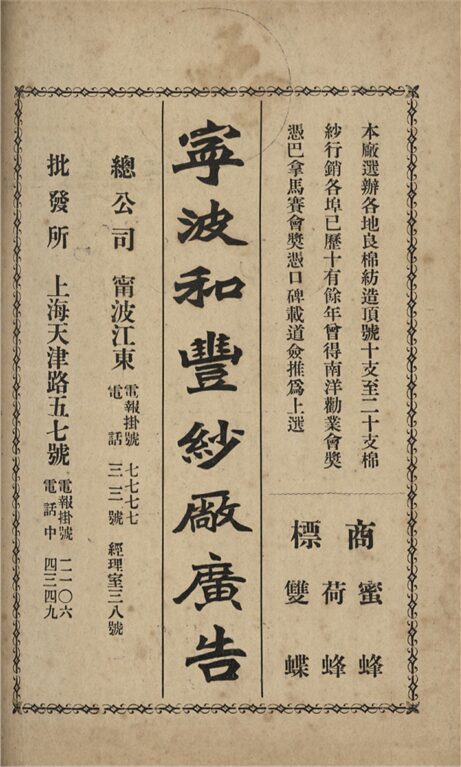 本廠選辦各地良棉紡造頂號十支至二十支棉
紗行銷各埠已歷十有餘年曾得南洋勸業會獎
憑巴拿馬賽會獎憑口碑載道僉推爲上選
商標
蜜蜂
荷蜂
雙蝶
寗波和豐紗廠廣告
總公司 甯波江東 電報掛號 七七七七
電話 三三號 經理室三八號
批發所 上海天津路五七號 電報掛號 二一〇六
電話中 四三四九